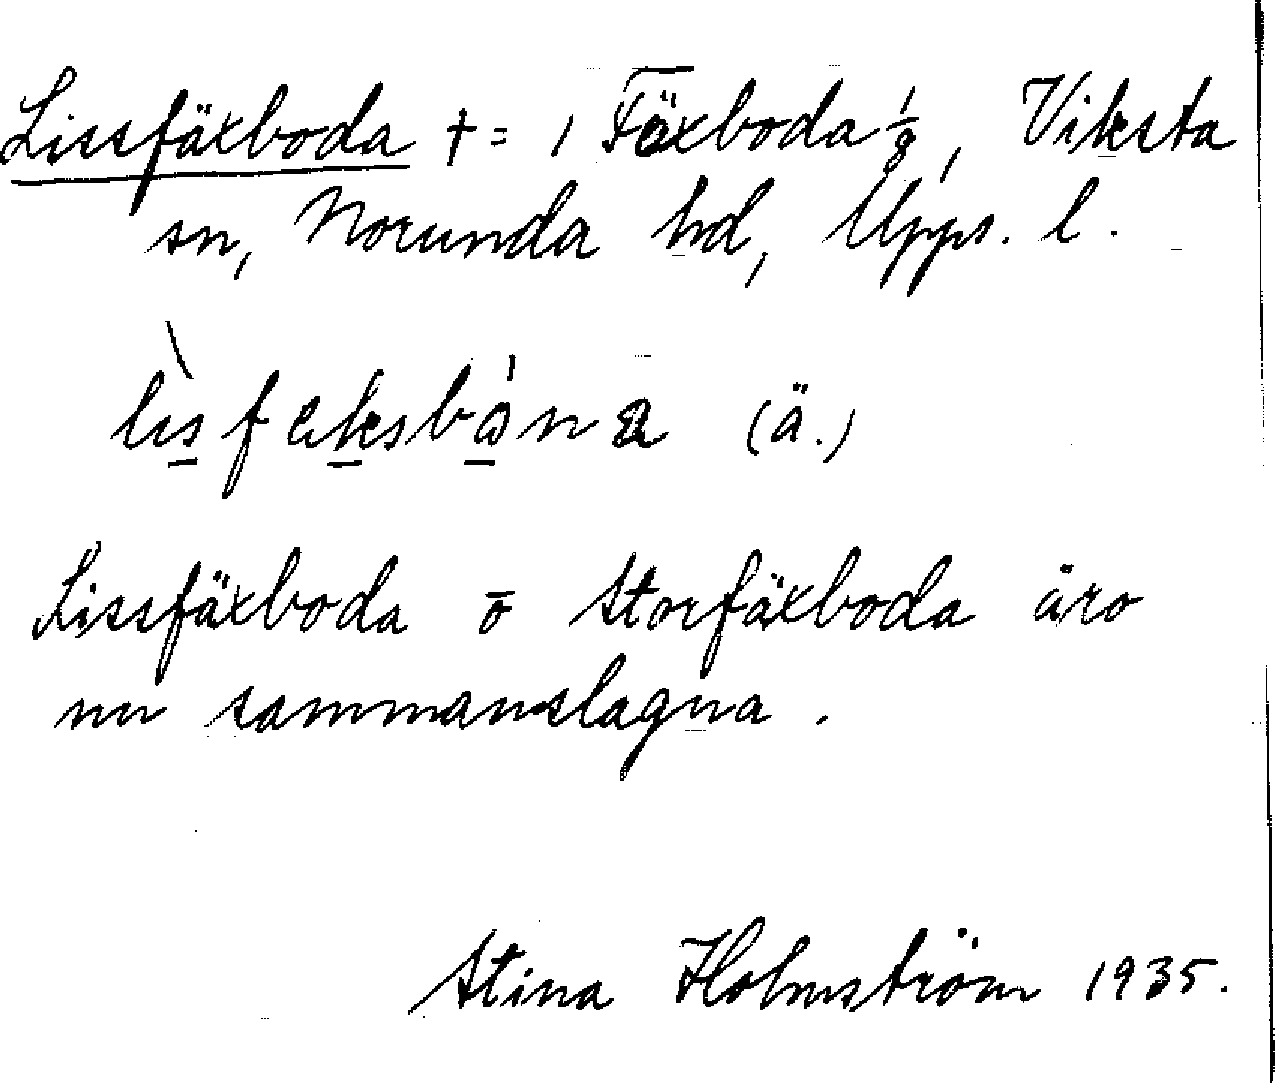 Lissfäxboda † = 1 Fäxboda 1/8, Viksta
sn, Norunda hd, Upps. l.
lìsfeksbóna (ä.)
Lissfäxboda o Storfäxboda äro
nu sammanslagna.
Stina Holmström 1935.